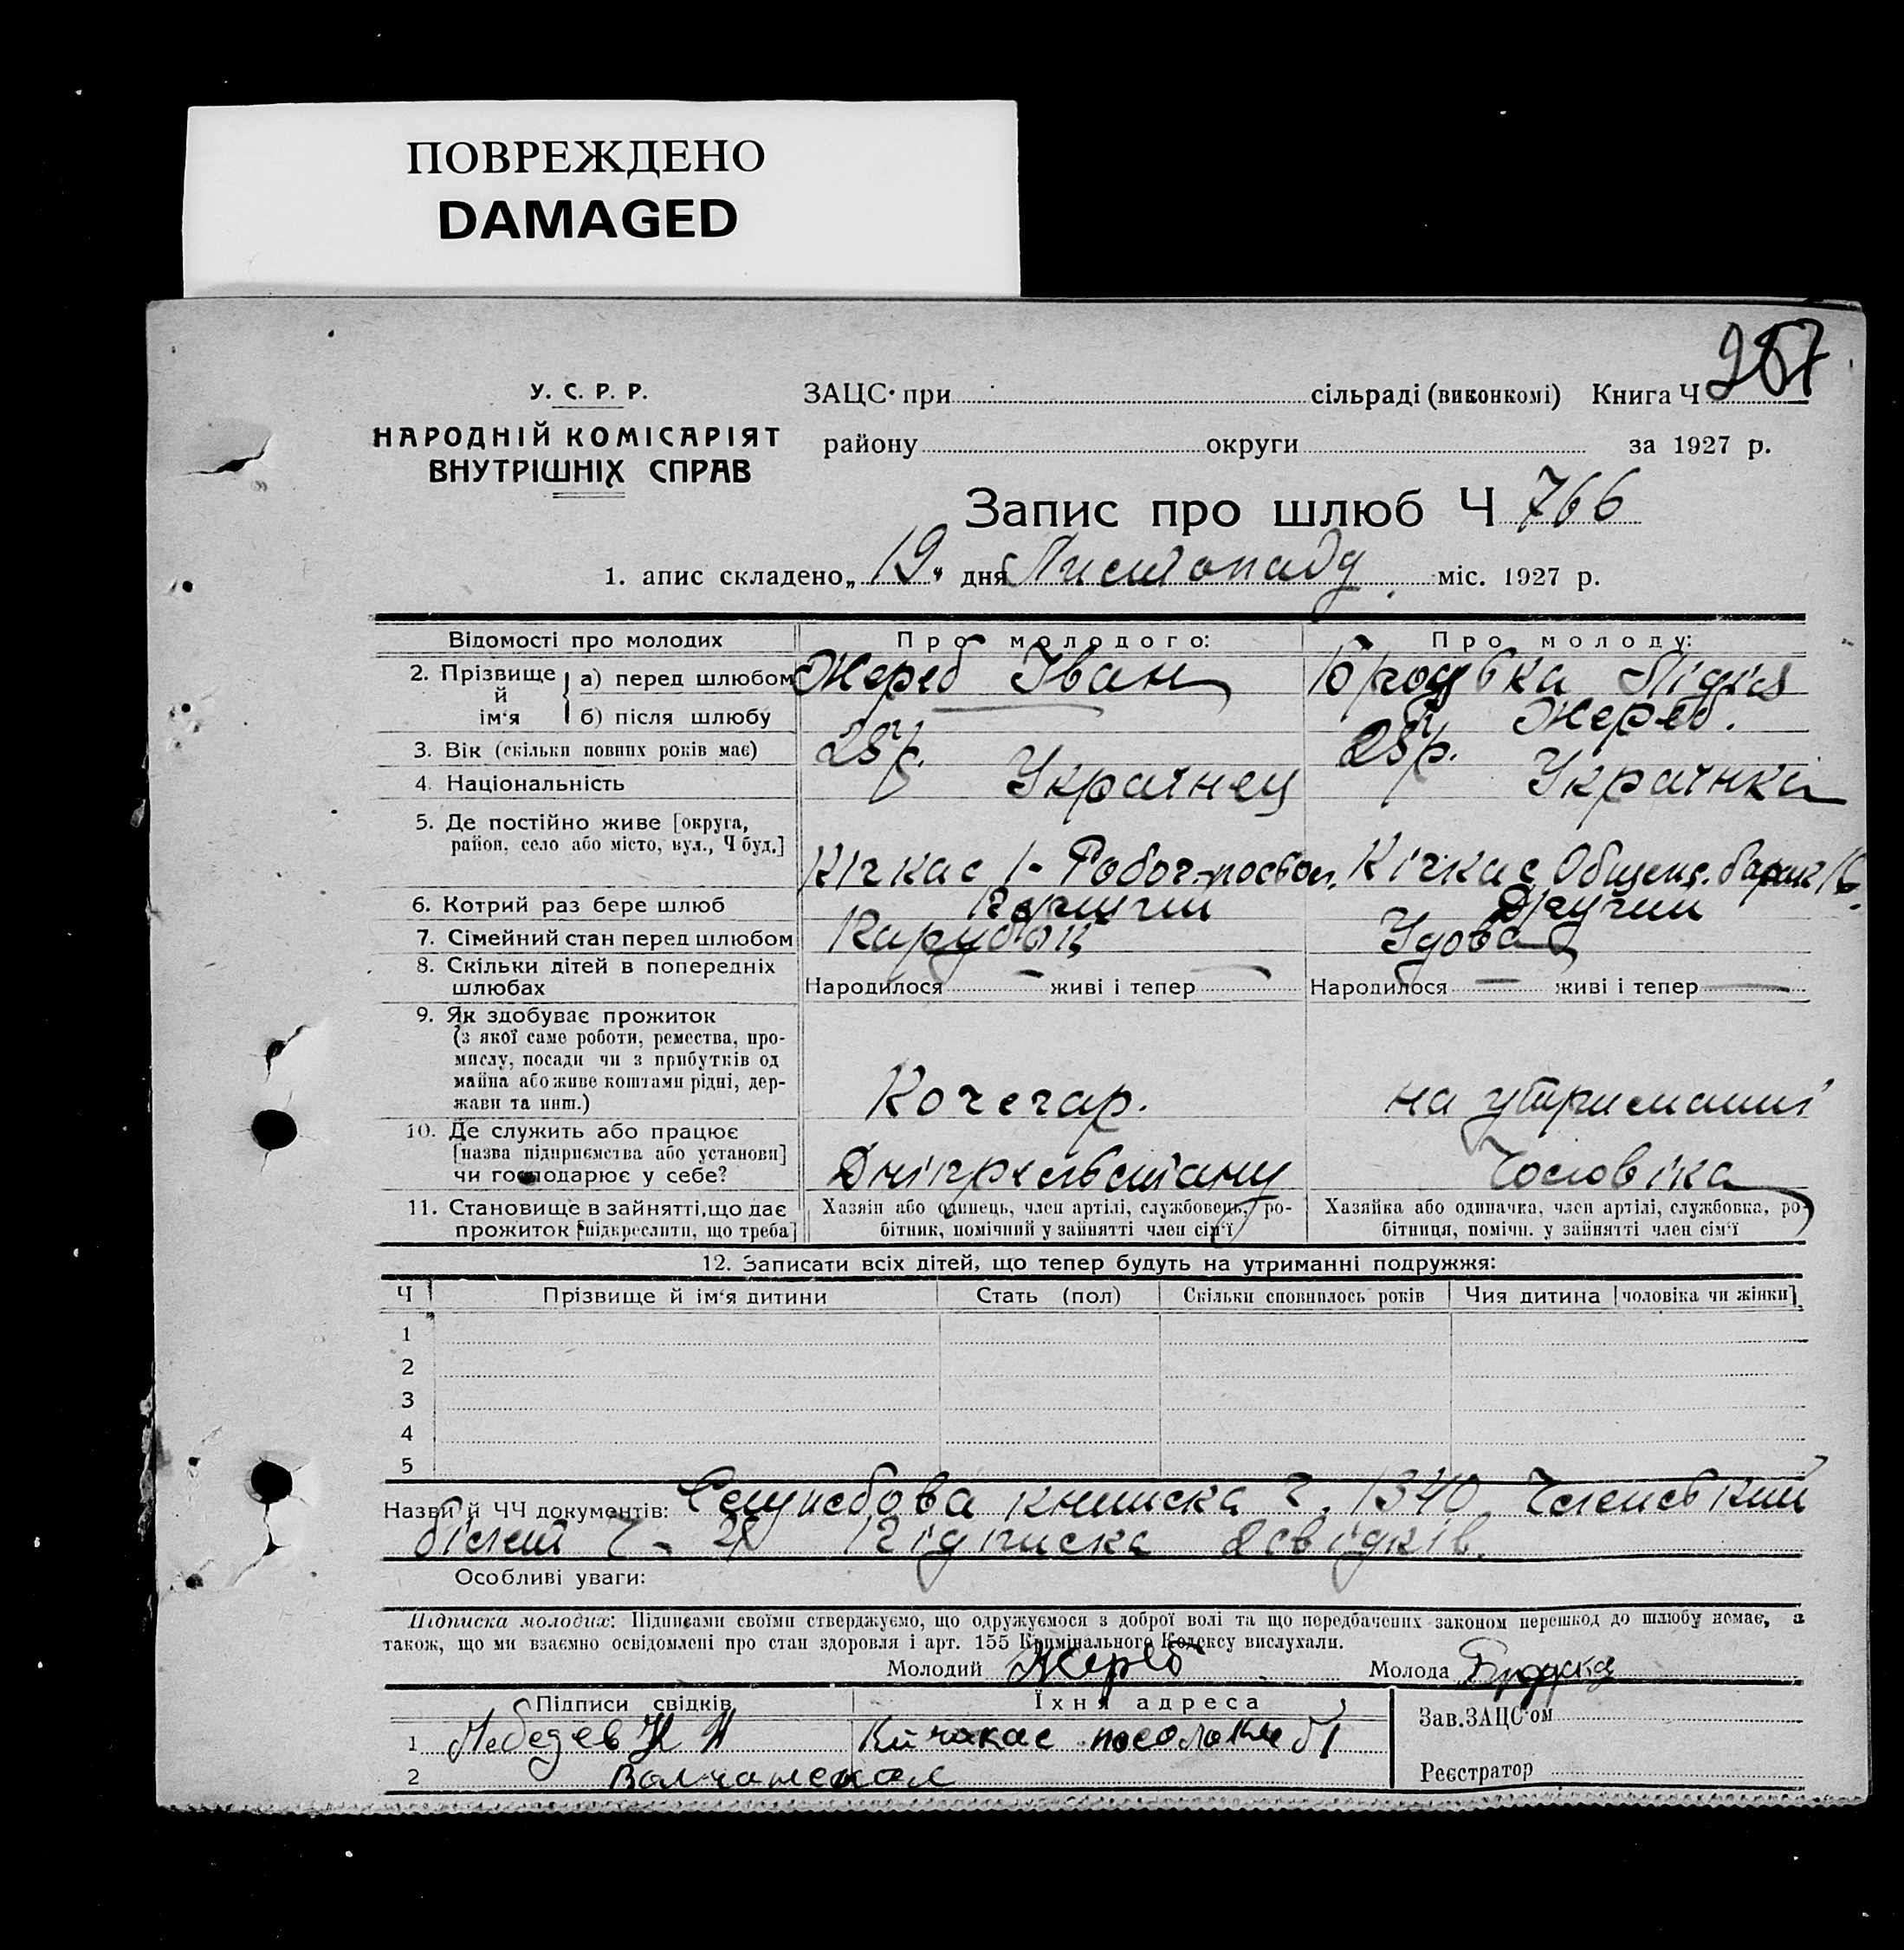 ПОВРЕЖДЕНО
DAMAGED
У. С. Р. Р.
НАРОДНІЙ КОМІСАРІЯТ
ВНУТРІШНІХ СПРАВ
ЗАЦС при сільраді (виконкомі) Книга Ч 257
району округи за 1927 р.
Запис про шлюб Ч 766
1. апис складено „19" дня Листопаду міс. 1927 р.
Відомості про молодих
Про молодого:
Про молоду:
2. Прізвище й ім'я
а) перед шлюбом Жереб Іван Лідія
б) після шлюбу Жереб.
3. Вік (скільки повних років має) 28 р. 28 р.
4. Національність Украінец Украінка
5. Де постійно живе [округа,
район, село або місто, вул., Ч буд.]
Кічкас 1-Робоч. посьол. Кічкас Общеж. барак 16.
6. Котрий раз бере шлюб Першій Другий
7. Сімейний стан перед шлюбом Парубок Удова
8. Скільки дітей в попередніх
шлюбах Народилося — живі і тепер — Народилося — живі і тепер —
9. Як здобуває прожиток
(з якої саме роботи, ремества, про-
мислу, посади чи з прибутків од
майна або живе коштами рідні, дер-
жави та инш.) Кочегар. на утриманні
10. Де служить або працює
[назва підприємства або установи]
чи господарює у себе? Дніпрельстану Чоловіка
11. Становище в зайнятті, що дає
прожиток [підкреслити, що треба]
Хазяїн або одинець, член артілі, службовець, ро-
бітник, помічний у зайнятті член сім'ї
Хазяйка або одиначка, член артілі, службовка, ро-
бітниця, помічн. у зайнятті член сім'ї
12. Записати всіх дітей, що тепер будуть на утриманні подружжя:
Ч Прізвище й ім'я дитини Стать (пол) Скільки сповнилось років Чия дитина [чоловіка чи жінки]
1
2
3
4
5
Назви й ЧЧ документів: Служебова книжка ч. 1340 Членський
білет Ч. Підписка свідків.
Особливі уваги:
Підписка молодих: Підписами своїми стверджуємо, що одружуємося з доброї волі та що передбачених законом перешкод до шлюбу немає, а
також, що ми взаємно освідомлені про стан здоровля і арт. 155 Крімінального Кодексу вислухали.
Молодий Жереб Молода
Підписи свідків Їхня адреса
1 Лебедев Кичкас поселок
2
Зав. ЗАЦС'ом
Реєстратор